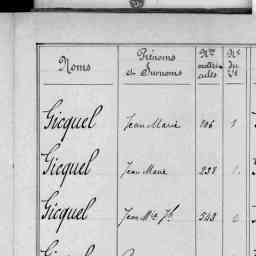 Noms Prénoms et Surnoms Nos matricules No du
Gicquel Jean Marie 106 1
Gicquel Jean Marie 238 1
Gicquel Jean Mie Jh 548